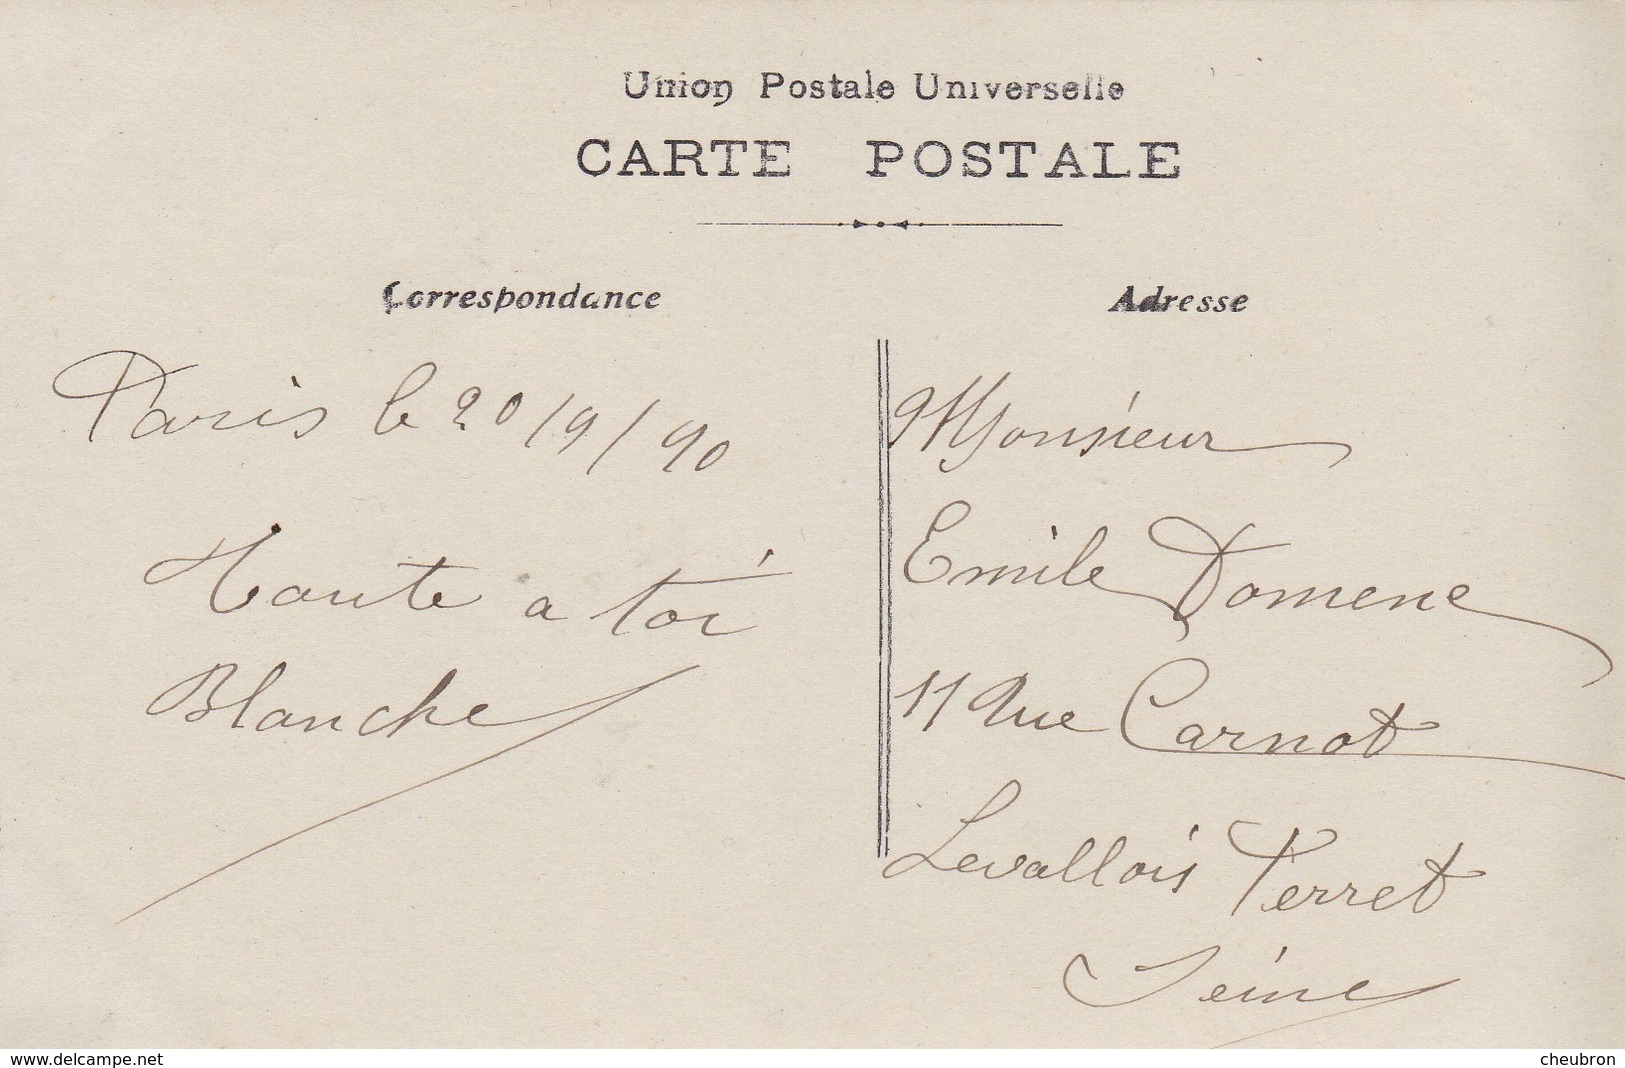 Union Postale Universelle
CARTE POSTALE
Correspondance
Paris le 20/9/90
Toute a toi
Blanche
Adresse
Monsieur
Emile Domene
11 Rue Carnot
Levallois Perret
Seine
www.delcampe.net
cheubron